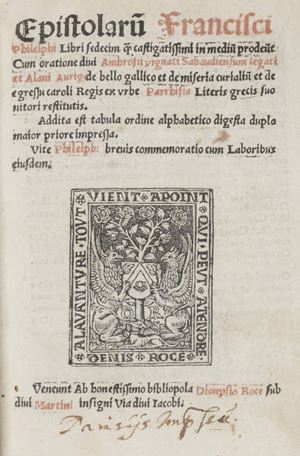 Epistolarū Francisci
Philelphi Libri sedecim q̄ castigatissimi in mediū prodeūt
Cum oratione diui Ambrosii vignati Sabaudiensium legati
et Alani Aurige de bello gallico et de miseria curialiū et de
egressu caroli Regis ex vrbe Parrhisia Literis grecis suo
nitori restitutis.
Addita est tabula ordine alphabetico digesta duplo
maior priore impressa.
Vite Philelphi breuis commemoratio cum Laboribus
eiusdem.
A LAVANTVRE TOVT VIENT A POINT QVI PEVT ATENDRE
DENIS ROCE
Veneunt Ab honestissimo bibliopola Dionysio Roce sub
diui Martini insigni Via diui Iacobi.
Parisijs